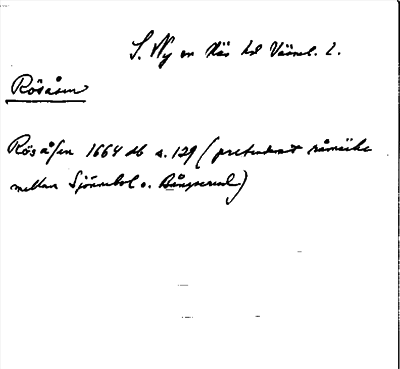 S. Ny sn Näs hd Värml. l.
Rösåsen
Rösåsen 1664 db s. 129 (pretenderat råmärke
mellan Sjönnebol o. Bångserud)